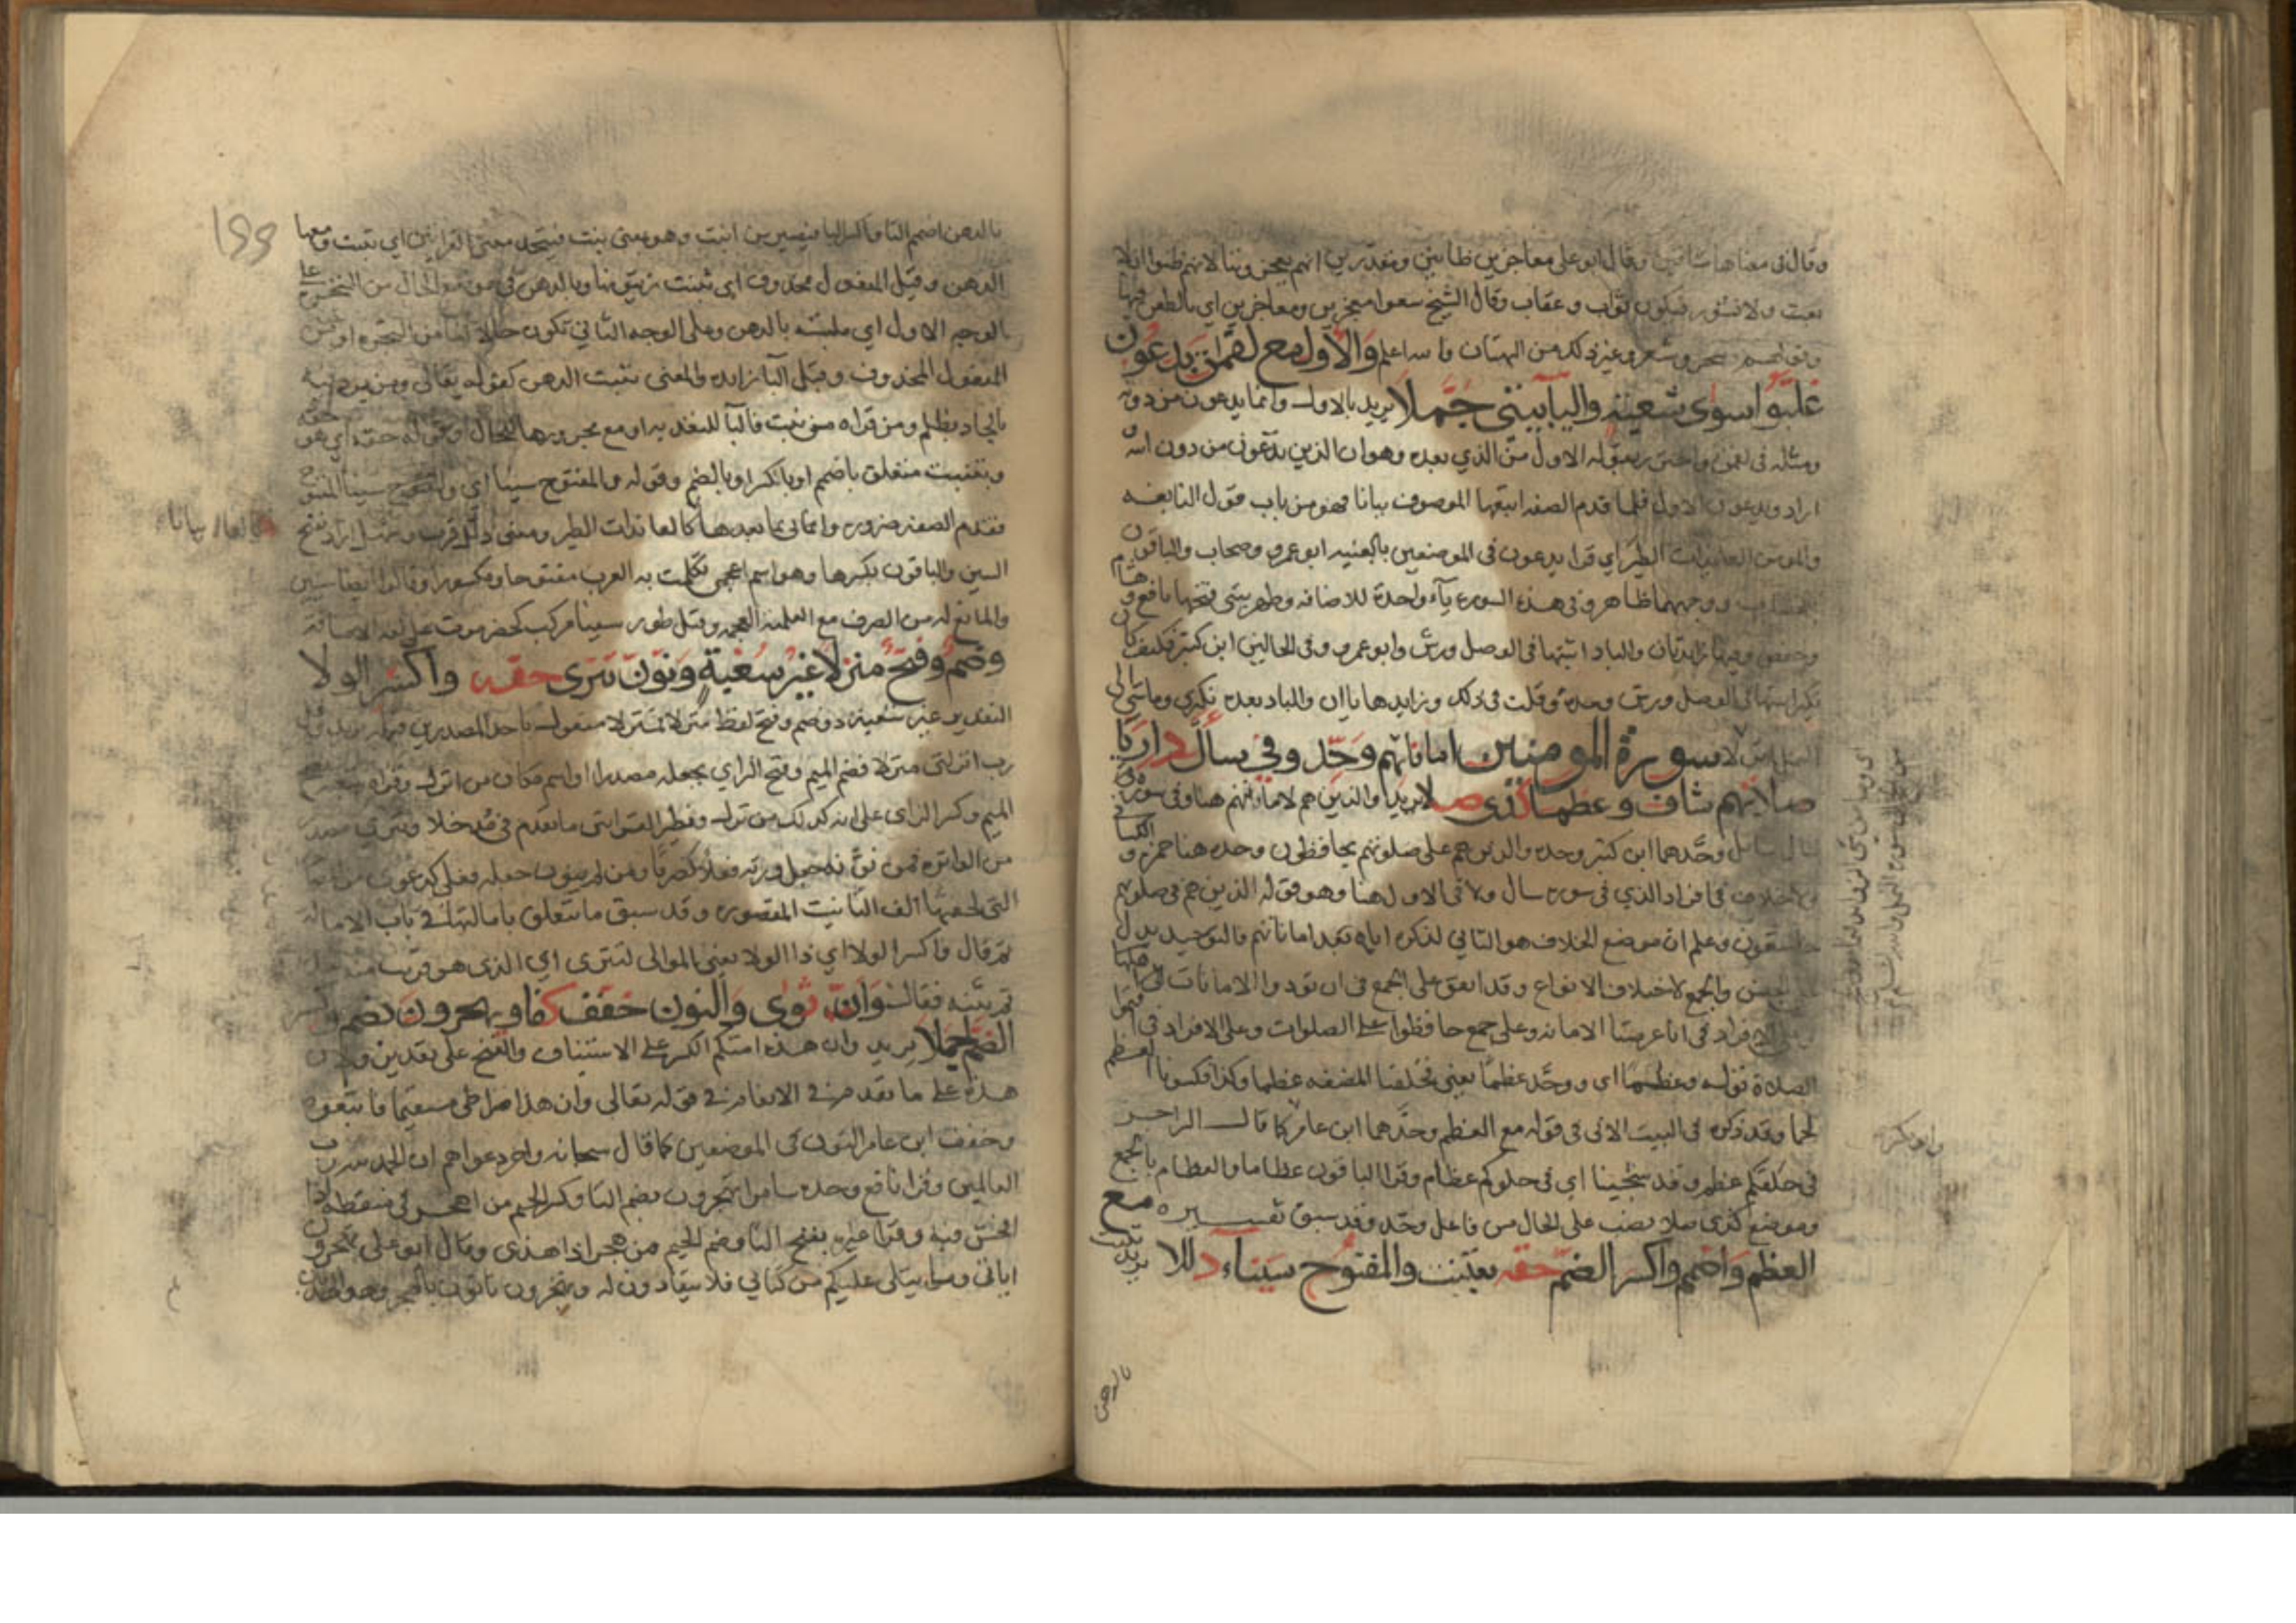 وقال في معناها مشاقين وقال ابو علي معاجزين ظانين ومقدرين انهم يعجزوننا لانهم ظنوا ان لا
بعث ولا نشور فيكون ثواب وعقاب وقال الشيخ سعوا معجزين ومعاجزين اي بالطعن فيها
سحر وشعر وغير ذلك من البهتان والله اعلم والاول مع لقمن يدعون
غلبوا سوى شعبة واليا بيتي جملا يريد بالاول وانما يدعون من دونه
ومثله في لقمن واحترز بقوله الاول من الذي بعده وهو ان الذين تدعون من دون الله
اراد ويدعون الاول فلما قدم الصفه اتبعها الموصوف بيانا فهو من باب قول النابغه
والمومن العايذات الطير اي قرا يدعون في الموضعين بالغيبه ابو عمرو وصحاب والباقون
بالخطاب ووجههما ظاهر وفي هذه السورة ياء واحدة للاضافه وطهر بيتي فتحها نافع وهشام
وحفص وفيها زايدتان والباد اثبتها في الوصل ورش وابو عمرو وفي الحالين ابن كثير فكيف كان
نكير اثبتها في الوصل ورش وحده وقلت في ذلك وزايدها يا ان والباد بعده نكيري وما شي الى
النمل انزلا سورة المومنين اماناتهم وحد وفي سال داريا
صلاتهم شاف وعظما كذي صلا يريد والذين هم لاماناتهم هنا وفي سورة
سال سايل وحدهما ابن كثير وحده والذين هم على صلوتهم يحافظون وحده هنا حمزه والكسائي
ولا خلاف في افراد الذي في سورة سال ولا في الاول هنا وهو قوله الذين هم في صلوتهم
خاشعون وعلم ان موضع الخلاف هو الثاني لذكره اياه بعد اماناتهم والتوحيد يدل
على الجنس والجمع لاختلاف الانواع وقد اتفق على الجمع في ان تودوا الامانات الى اهلها
وعلى الافراد في انا عرضنا الامانه وعلى جمع حافظوا على الصلوات وعلى الافراد في اقيموا
الصلاة قوله وعظما اي ووحد عظما يعني فخلقنا المضغه عظما وكذا فكسونا العظم
لحما وقد ذكره في البيت الاتي في قوله مع العظم وحدهما ابن عامر كما قال الراجز
في حلقكم عظم وقد شجينا اي في حلوقكم عظام وقرا الباقون عظاما والعظام بالجمع
وموضع كذي صلا نصب على الحال من فاعل وحد وقد سبق تفسيره مع
العظم واضمم واكسر الضم حقه بتنبت والمفتوح سيناء ذللا
يريد تنبت
بالدهن
واو ذكر
بالدهن اضمم التا واكسر البا فيصير من انبت وهو بمعنى نبت فيتحد معنى القراءتين اي تنبت ومعها
الدهن وقيل المفعول محذوف اي تنبت زيتونها وبالدهن في موضع الحال من الشجره على
الوجه الاول اي ملتبسه بالدهن وعلى الوجه الثاني تكون حالا اما من الشجره او من
المفعول المحذوف وقيل البا زايده والمعنى تنبت الدهن كقوله تعالى ومن يرد فيه
بالحاد بظلم ومن قراه من نبت فالبا للتعديه او مع مجرورها للحال وقوله حقه اي هو حقه
وبتنبت متعلق باضمم او باكسر او بالضم وقوله والمفتوح سينا اي والمفتوح سينا المفتوح
فقدم الصفه ضرورة واتى بما بعدها كالعايذات الطير ومعنى ذلل قرب وسهل اراد بفتح
كالها بيانا
السين والباقون بكسرها وهو اسم اعجمي تكلمت به العرب مفتوحا ومكسورا وقالوا ايضا سينين
والمانع له من الصرف مع العلميه العجمه وقيل طور سينا مركب كحضرموت على لغه الاضافه
وضم وفتح منزلا غير شعبة ونون تترى حقه واكسر الولا
التقدير غير شعبة ذو ضم وفتح لفظ منزلا فمنزلا مفعول باحد المصدرين
رب انزلني منزلا فضم الميم وفتح الزاي بجعله مصدرا او اسم مكان من انزل وقراه شعبه بفتح
الميم وكسر الزاي على انه كذلك من نزل ونظير القراءتين ما تقدم في مدخلا وتترى مصدر
من المواتره فمن نون جعل وزنه فعلا كضربا ومن لم ينون جعله فعلى كدعوى من المصادر
التي لحقتها الف التانيث المقصوره وقد سبق ما يتعلق بامالتها في باب الاماله
ثم قال واكسر الولا اي ذا الولا يعني الموالي لتترى اي الذي هو قريب منه
ثم بينه فقال وان ثوى والنون خفف كفا وتهجرون بضم واكسر
الضم اجملا يريد وان هذه امتكم الكسر على الاستيناف والفتح على تقدير ولان
هذه على ما تقدم في الانعام في قوله تعالى وان هذا صراطي مستقيما فاتبعوه
وخفف ابن عامر النون في الموضعين كما قال سبحانه واخر دعواهم ان الحمد لله رب
العالمين وقرا نافع وحده سامرا تهجرون بضم التا وكسر الجيم من اهجر في منطقه اذا
افحش فيه وقرا غيره بفتح التا وضم الجيم من هجر اذا هذى وقال ابو علي تهجرون
اياتي وما يتلى عليكم من كتابي فلا تنقادون له وتهجرون تاتون بالهجر وهو الهذيان